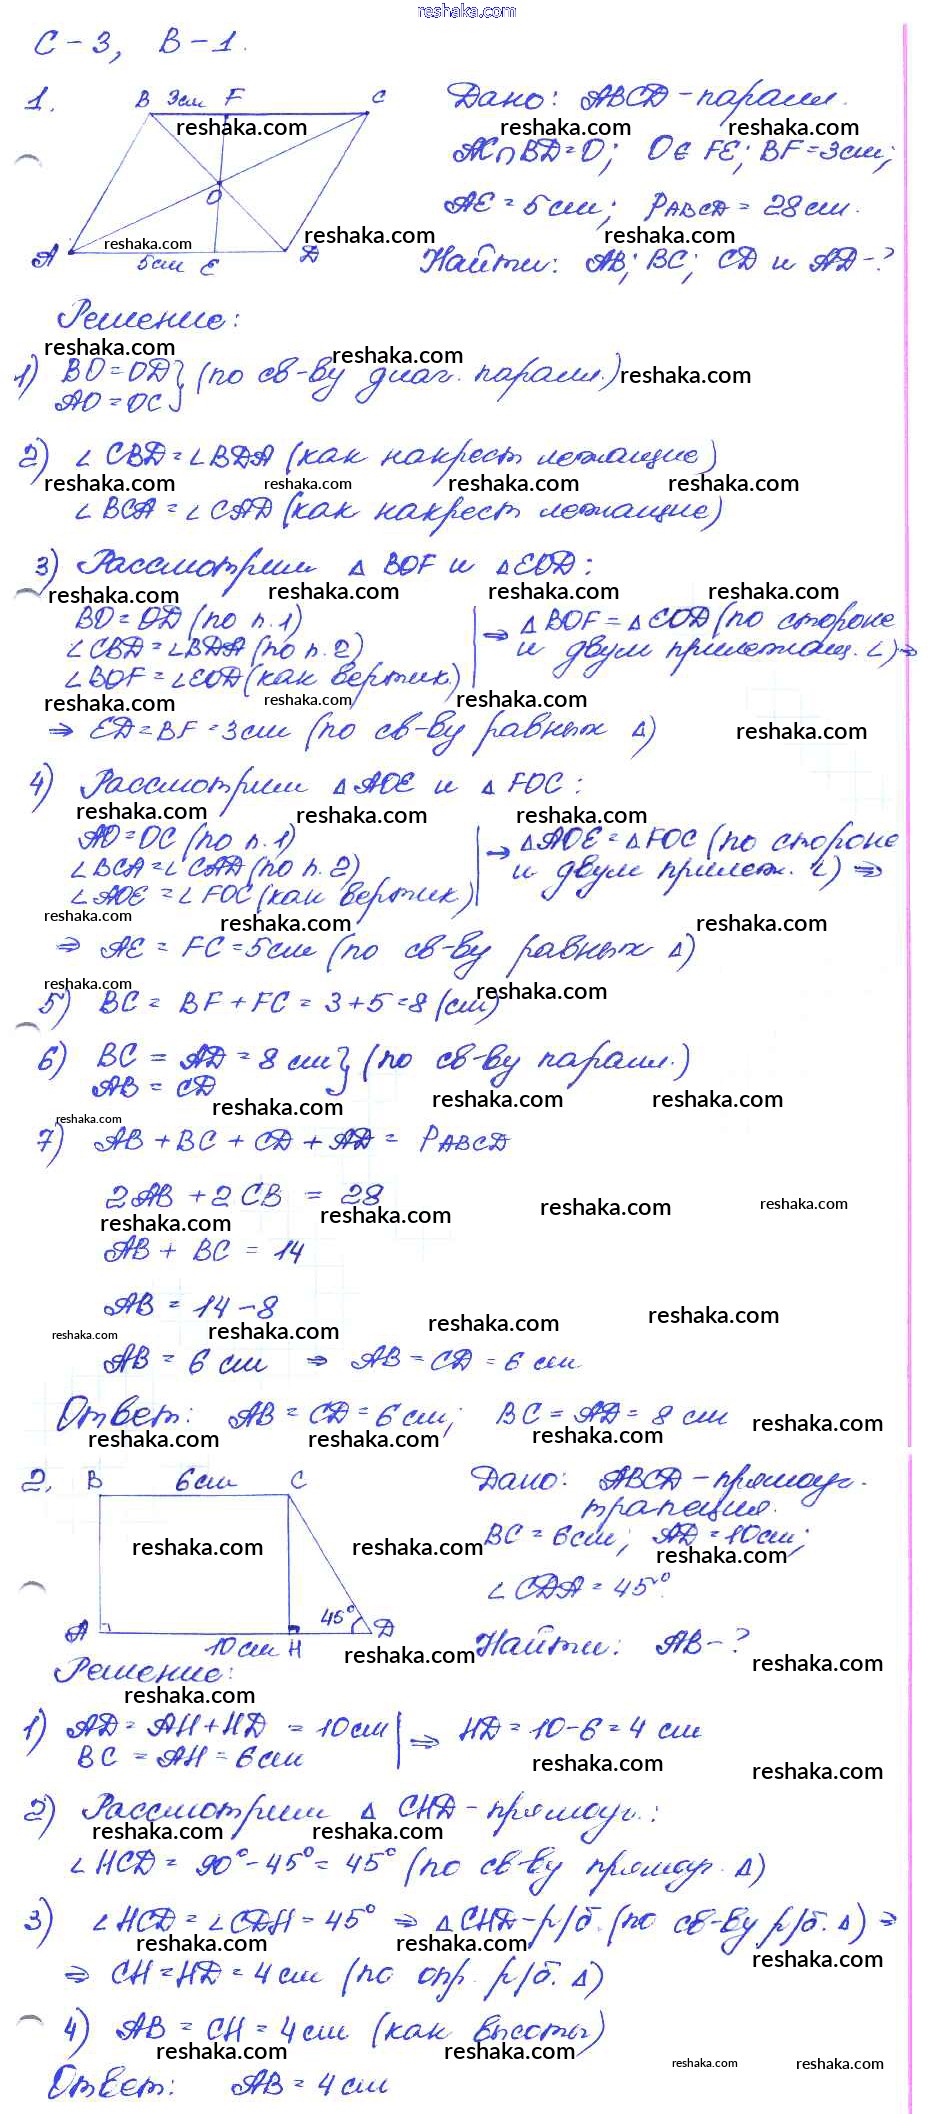 reshaka.com
С-3, В-1.
1. B 3см F C
A O 5см E D
Дано: ABCD-паралл.
AC∩BD=O; O∈FE; BF=3см;
AE=5см; PABCD=28см.
Найти: AB; BC; CD и AD-?
Решение:
1) BO=OD } (по св-ву диаг. паралл.)
AO=OC
2) ∠CBD=∠BDA (как накрест лежащие)
∠BCA=∠CAD (как накрест лежащие)
3) Рассмотрим △BOF и △EOD:
BO=OD (по п.1)
∠CBD=∠BDA (по п.2)
∠BOF=∠EOD (как вертик.)
⇒ △BOF=△EOD (по стороне
и двум прилежащ. ∠) ⇒
⇒ ED=BF=3см (по св-ву равных △)
4) Рассмотрим △AOE и △FOC:
AO=OC (по п.1)
∠BCA=∠CAD (по п.2)
∠AOE=∠FOC (как вертик.)
⇒ △AOE=△FOC (по стороне
и двум прилеж. ∠) ⇒
⇒ AE=FC=5см (по св-ву равных △)
5) BC=BF+FC=3+5=8 (см)
6) BC=AD=8см } (по св-ву паралл.)
AB=CD
7) AB+BC+CD+AD=PABCD
2AB+2CB=28
AB+BC=14
AB=14-8
AB=6см ⇒ AB=CD=6см
Ответ: AB=CD=6см; BC=AD=8см
2. B 6см C
A 10см H 45° D
Дано: ABCD-прямоуг.
трапеция.
BC=6см; AD=10см;
∠CDA=45°.
Найти: AB-?
Решение:
1) AD=AH+HD=10см
BC=AH=6см
⇒ HD=10-6=4см
2) Рассмотрим △CHD-прямоуг.:
∠HCD=90°-45°=45° (по св-ву прямоуг. △)
3) ∠HCD=∠CDH=45° ⇒ △CHD-р/б. (по св-ву р/б. △) ⇒
⇒ CH=HD=4см (по опр. р/б. △)
4) AB=CH=4см (как высоты)
Ответ: AB=4см